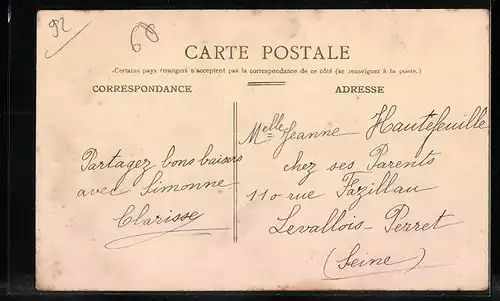 92
60
CARTE POSTALE
Certains pays étrangers n'acceptent pas la correspondance de ce côté (se renseigner à la poste.)
CORRESPONDANCE
Partagez bons baisers
avec Simonne
Clarisse
ADRESSE
Melle Jeanne Hautefeuille
chez ses Parents
110 rue Fazillau
Levallois-Perret
(Seine)